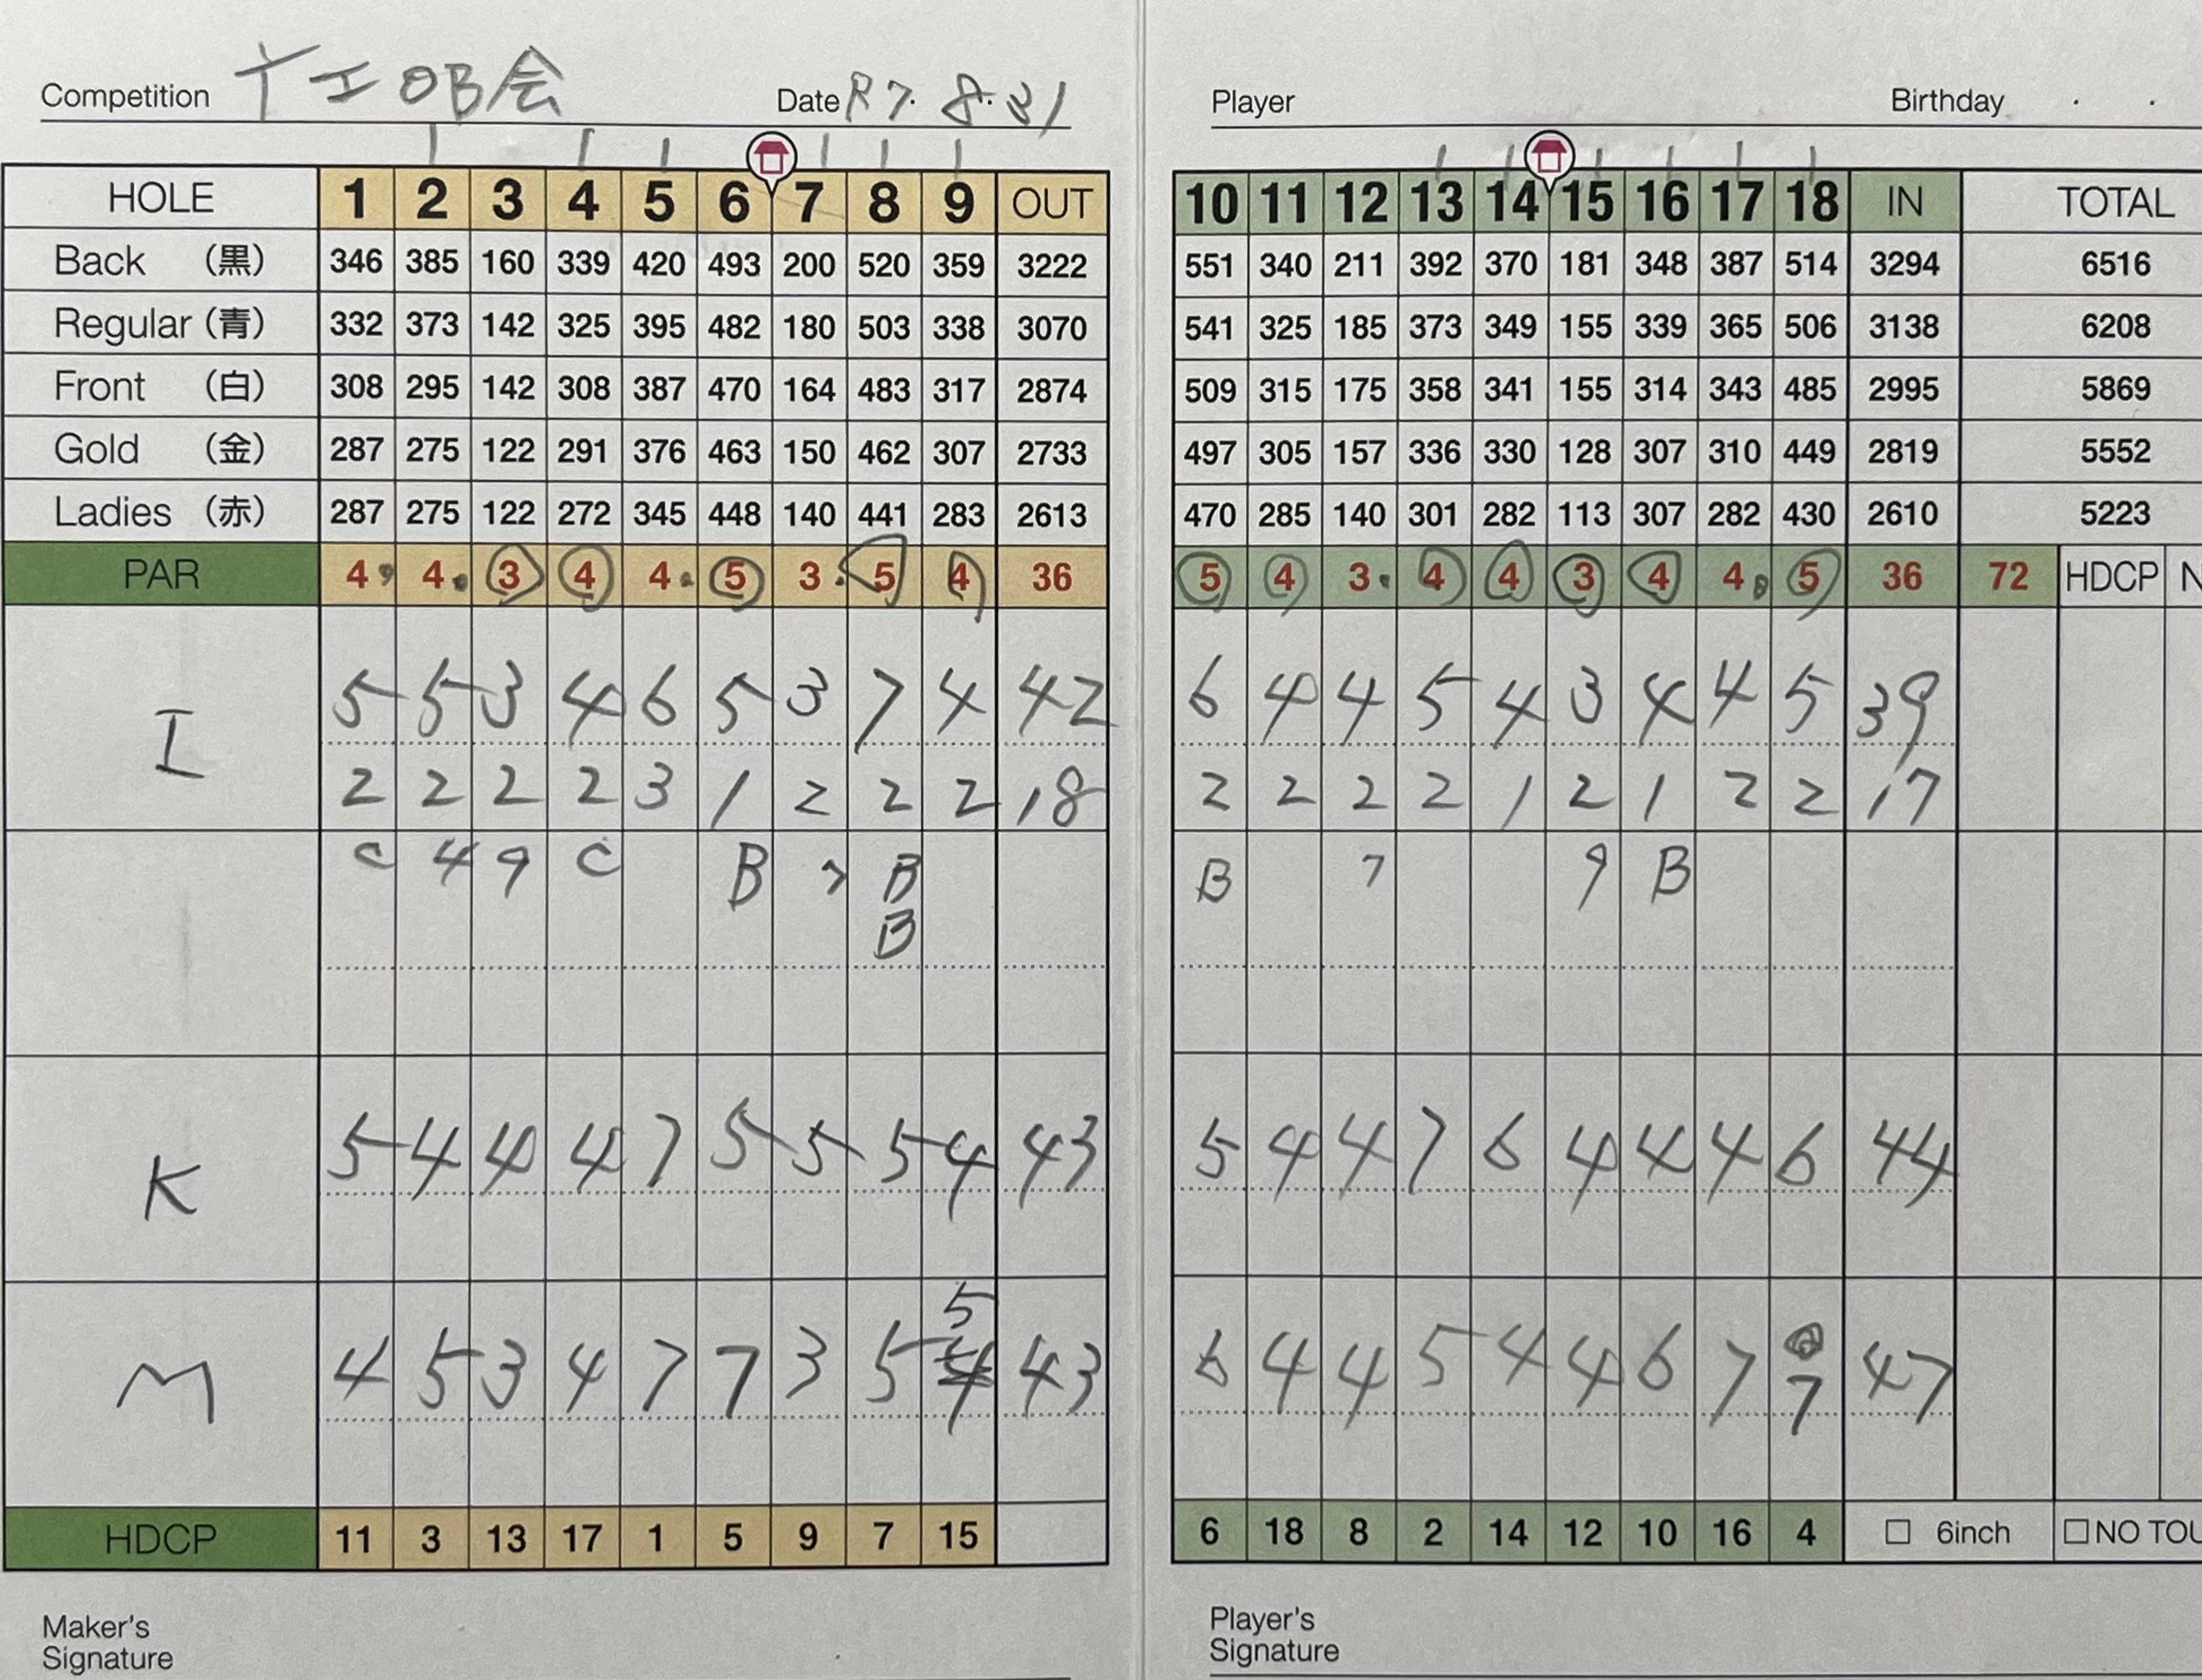 Competition 千工OB会 Date R7. 8. 31 Player Birthday . .
HOLE 1 2 3 4 5 6 7 8 9 OUT 10 11 12 13 14 15 16 17 18 IN TOTAL
Back (黒) 346 385 160 339 420 493 200 520 359 3222 551 340 211 392 370 181 348 387 514 3294 6516
Regular (青) 332 373 142 325 395 482 180 503 338 3070 541 325 185 373 349 155 339 365 506 3138 6208
Front (白) 308 295 142 308 387 470 164 483 317 2874 509 315 175 358 341 155 314 343 485 2995 5869
Gold (金) 287 275 122 291 376 463 150 462 307 2733 497 305 157 336 330 128 307 310 449 2819 5552
Ladies (赤) 287 275 122 272 345 448 140 441 283 2613 470 285 140 301 282 113 307 282 430 2610 5223
PAR 4 4 3 4 4 5 3 5 4 36 5 4 3 4 4 3 4 4 5 36 72 HDCP N
I 5 5 3 4 6 5 3 7 4 42 6 4 4 5 4 3 4 4 5 39
2 2 2 2 3 1 2 2 2 18 2 2 2 2 1 2 1 2 2 17
C 4 9 C B 7 B B 7 9 B
B
K 5 4 4 4 7 5 5 5 4 43 5 4 4 7 6 4 4 4 6 44
M 4 5 3 4 7 7 3 5 5 43 6 4 4 5 4 4 6 7 7 47
HDCP 11 3 13 17 1 5 9 7 15 6 18 8 2 14 12 10 16 4 □ 6inch □ NO TOU
Maker's Player's
Signature Signature